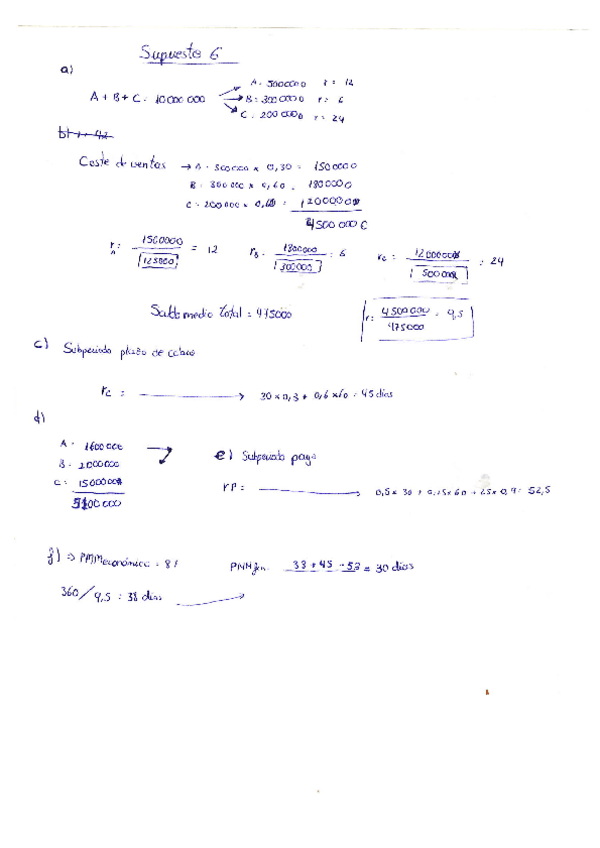 Supuesto 6
a)
A + B + C = 10 000 000
A = 5000000 r = 12
B = 3000000 r = 6
C = 2000000 r = 24
b)
Coste de ventas → A = 5000000 x 0,30 = 1500000
B = 3000000 x 0,60 = 1800000
C = 2000000 x 0,60 = 1200000
4500 000 €
r A = 1500000 / 125000 = 12
rB = 1800000 / 300000 = 6
rc = 1200000 / 50000 = 24
Saldo medio total = 475000
r = 4500000 / 475000 = 9,5
c) Subperiodo plazo de cobro
rc = → 30 x 0,3 + 0,6 x 60 = 45 dias
d)
A = 1600 000
B = 2000000
C = 1500000
5100 000
e) Subperiodo pago
rp = → 0,5 x 30 + 0,25 x 60 + 25 x 0,9 = 52,5
f) ⇒ PMMeconómico = 81
PMMfin. 38 + 45 - 53 = 30 dias
360/9,5 = 38 dias →